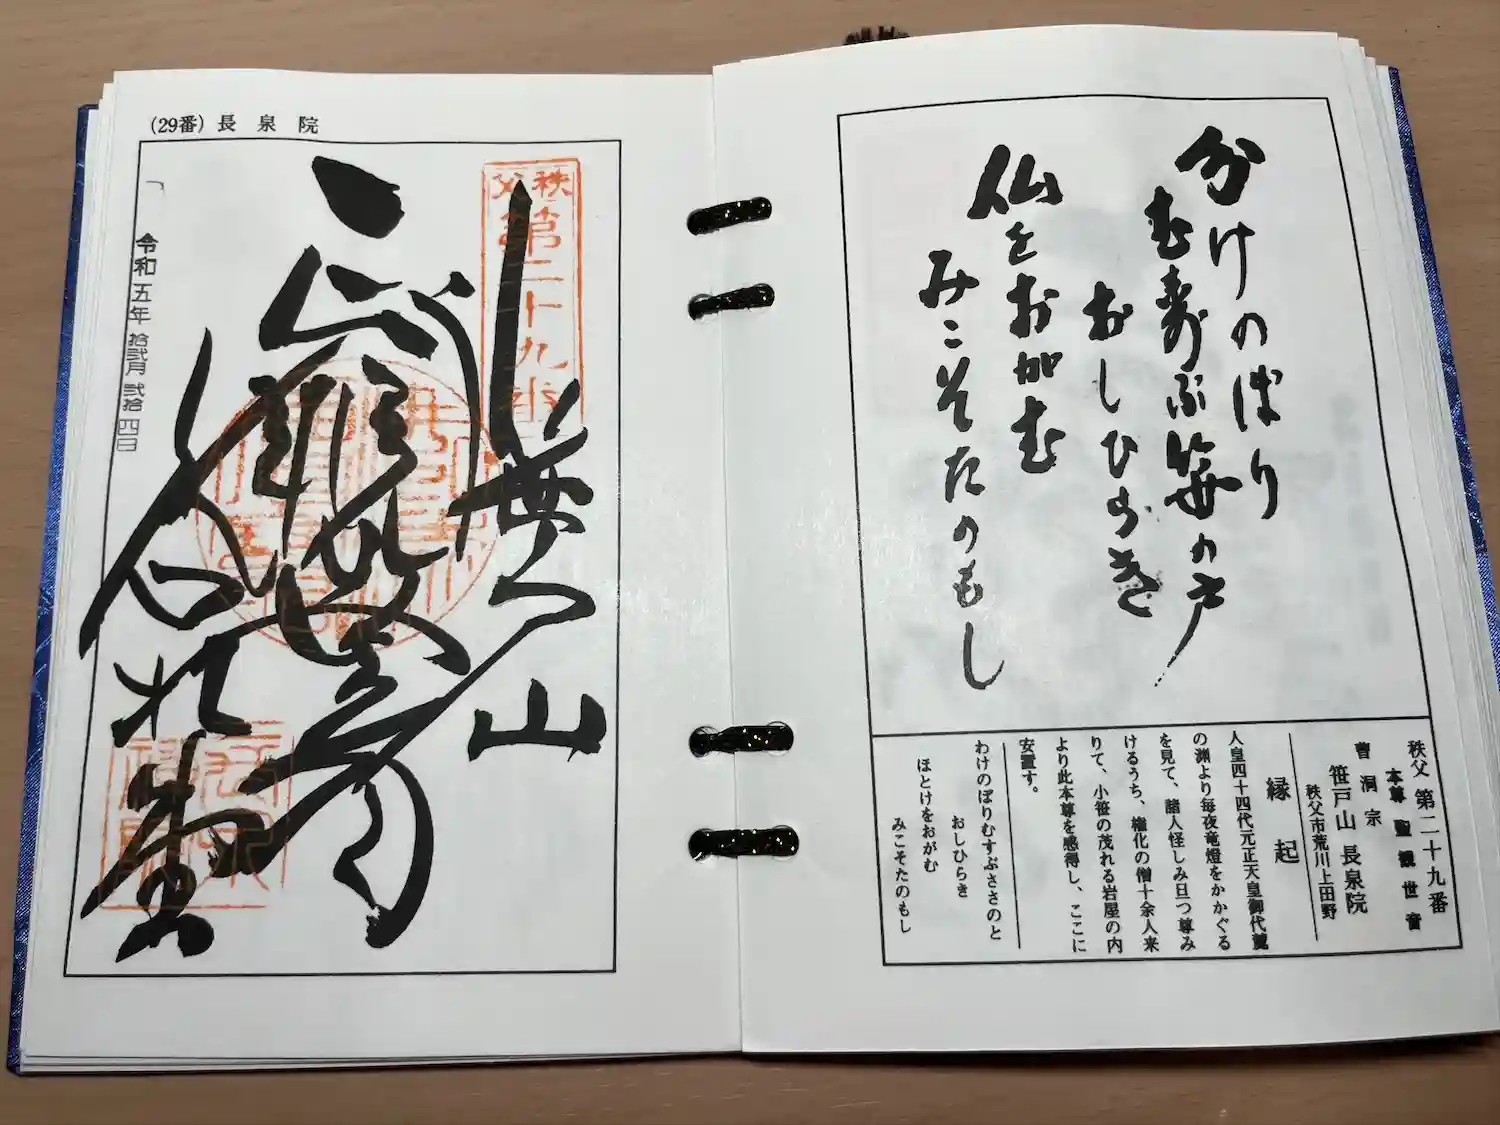 分けのぼり
むすぶ笹の戸
おしひらき
仏をおがむ
みこそたのもし
秩父 第二十九番
本尊 聖観世音
曹洞宗
笹戸山 長泉院
秩父市荒川上田野
縁起
人皇四十四代元正天皇御代麓
の渕より毎夜竜燈をかかぐる
を見て、諸人怪しみ旦つ尊み
けるうち、権化の僧十余人来
りて、小笹の茂れる岩屋の内
より此本尊を感得し、ここに
安置す。
わけのぼりむすぶささのと
おしひらき
ほとけをおがむ
みこそたのもし
(29番) 長泉院
秩父
第二十九番
山
令和五年 拾弐月 弐拾四日